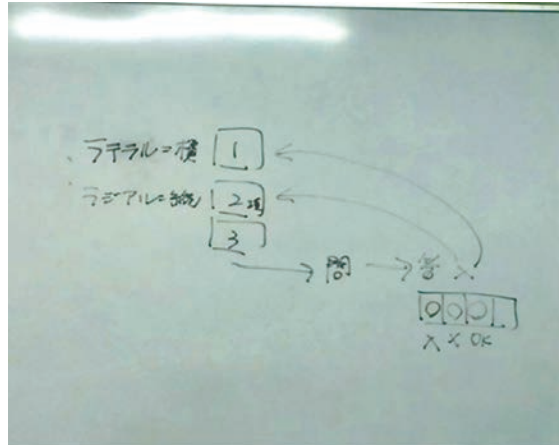 ラテラル=横 1
ラジアル=縦 2
3
問 答 ×
○○○
× × OK